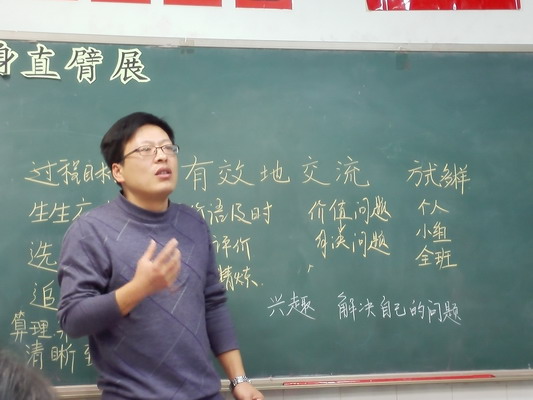 身直臂展
过程目标 有效地交流 方式多样
生生 语及时 价值问题 个人
选 评价 有误问题 小组
精炼 全班
追
兴趣 解决自己的问题
算理
清晰